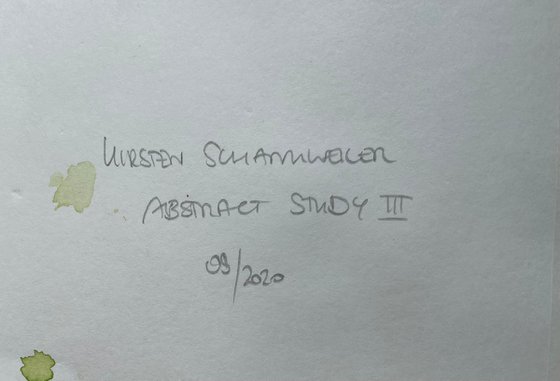 KIRSTEN SCHANKWEILER
ABSTRACT STUDY III
09/2020